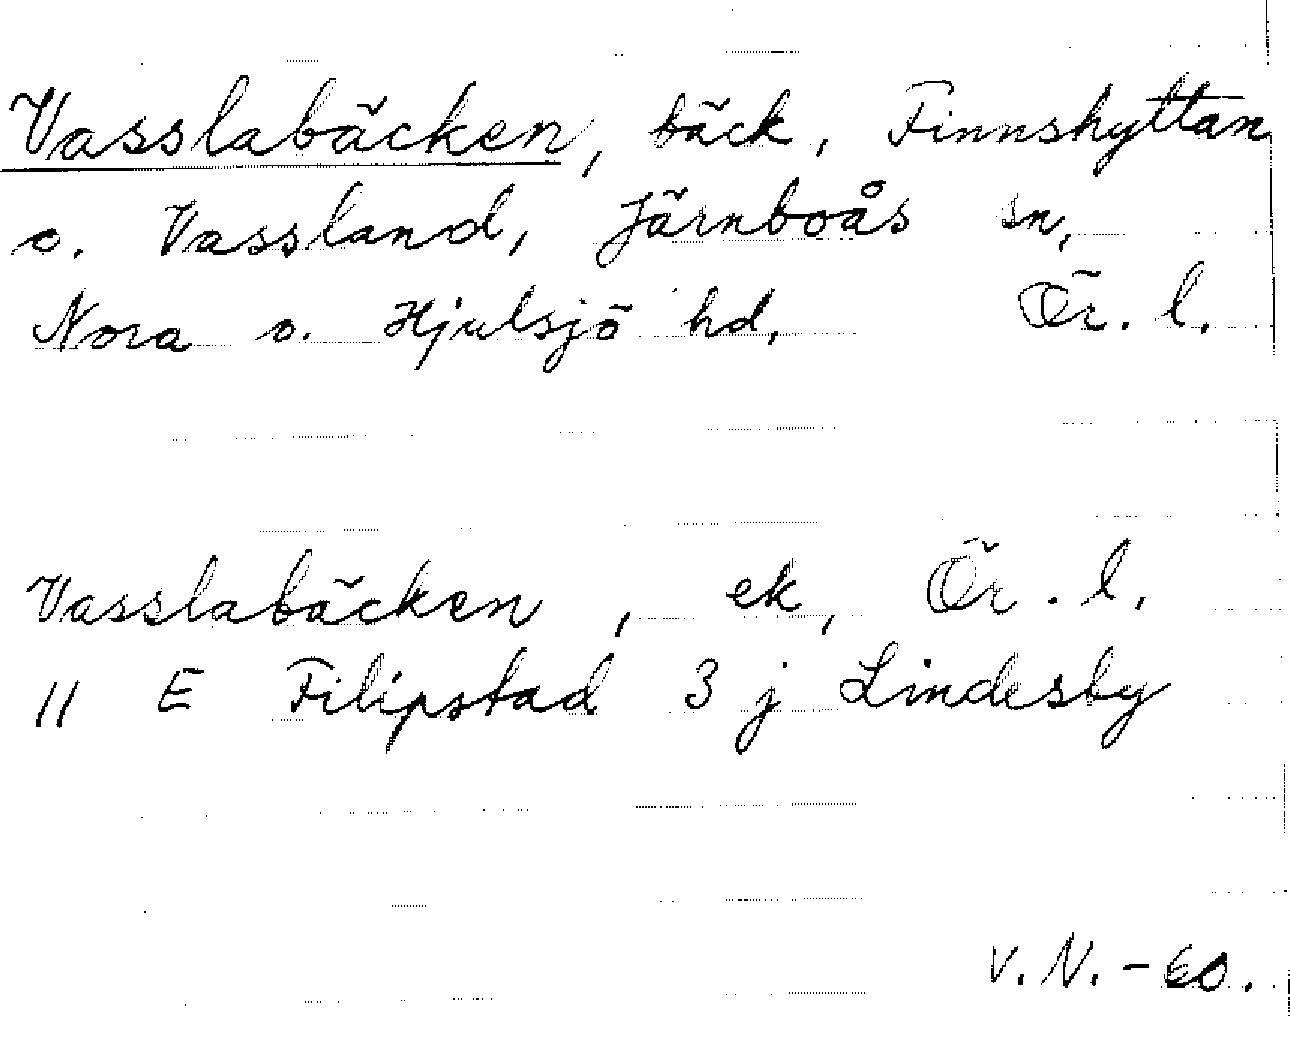 Vasslabäcken, bäck, Finnshyttan
o. Vassland, Järnboås sn,
Nora o. Hjulsjö hd, Ör. l.
Vasslabäcken, ek, Ör. l.
11 E Filipstad 3 j Lindesby
V. N. - 60.